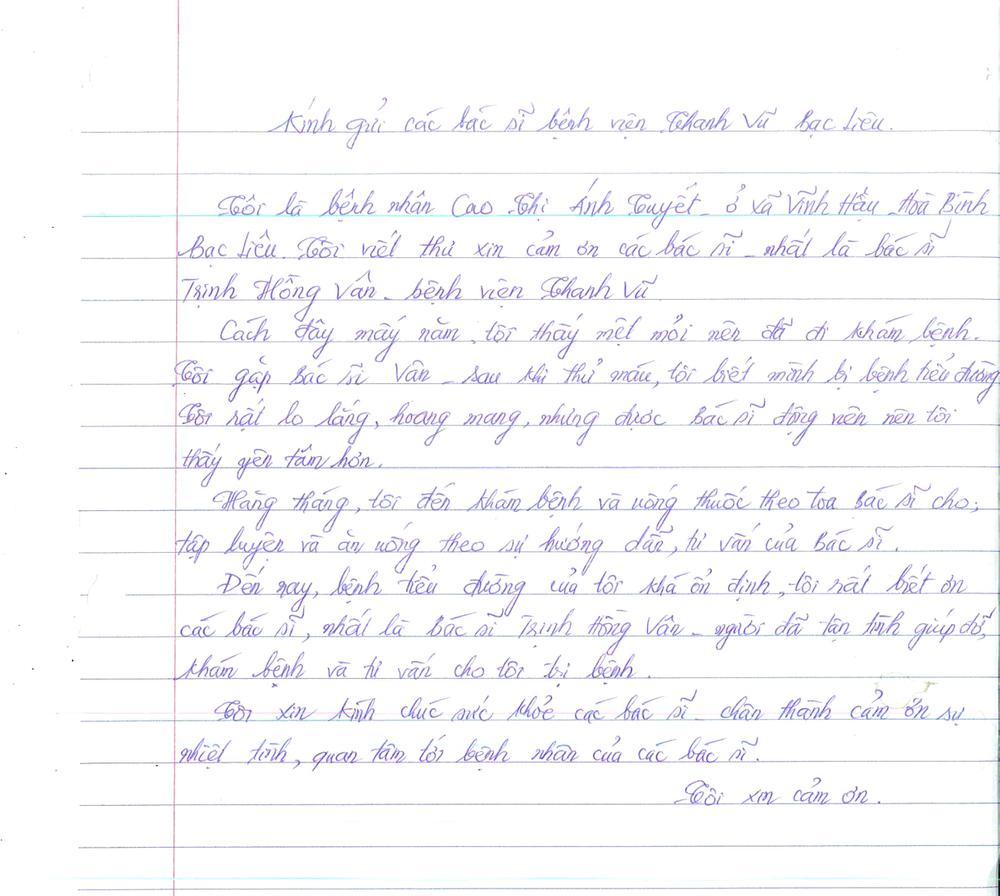 Kính gửi các bác sĩ bệnh viện Thanh Vũ Bạc Liêu.
Tôi là bệnh nhân Cao Thị Ánh Tuyết - ở xã Vĩnh Hậu - Hoà Bình
Bạc Liêu. Tôi viết thư xin cảm ơn các bác sĩ - nhất là bác sĩ
Trịnh Hồng Vân - bệnh viện Thanh Vũ
Cách đây mấy năm, tôi thấy mệt mỏi nên đã đi khám bệnh.
Tôi gặp Bác sĩ Vân - sau khi thử máu, tôi biết mình bị bệnh tiểu đường
Tôi rất lo lắng, hoang mang, nhưng được Bác sĩ động viên nên tôi
thấy yên tâm hơn.
Hàng tháng, tôi đến khám bệnh và uống thuốc theo toa Bác sĩ cho;
tập luyện và ăn uống theo sự hướng dẫn, tư vấn của Bác sĩ.
Đến nay, bệnh tiểu đường của tôi khá ổn định, tôi rất biết ơn
các bác sĩ, nhất là Bác sĩ Trịnh Hồng Vân - người đã tận tình giúp đỡ,
khám bệnh và tư vấn cho tôi trị bệnh.
Tôi xin kính chúc sức khỏe các bác sĩ - chân thành cảm ơn sự
nhiệt tình, quan tâm tới bệnh nhân của các bác sĩ.
Tôi xin cảm ơn.